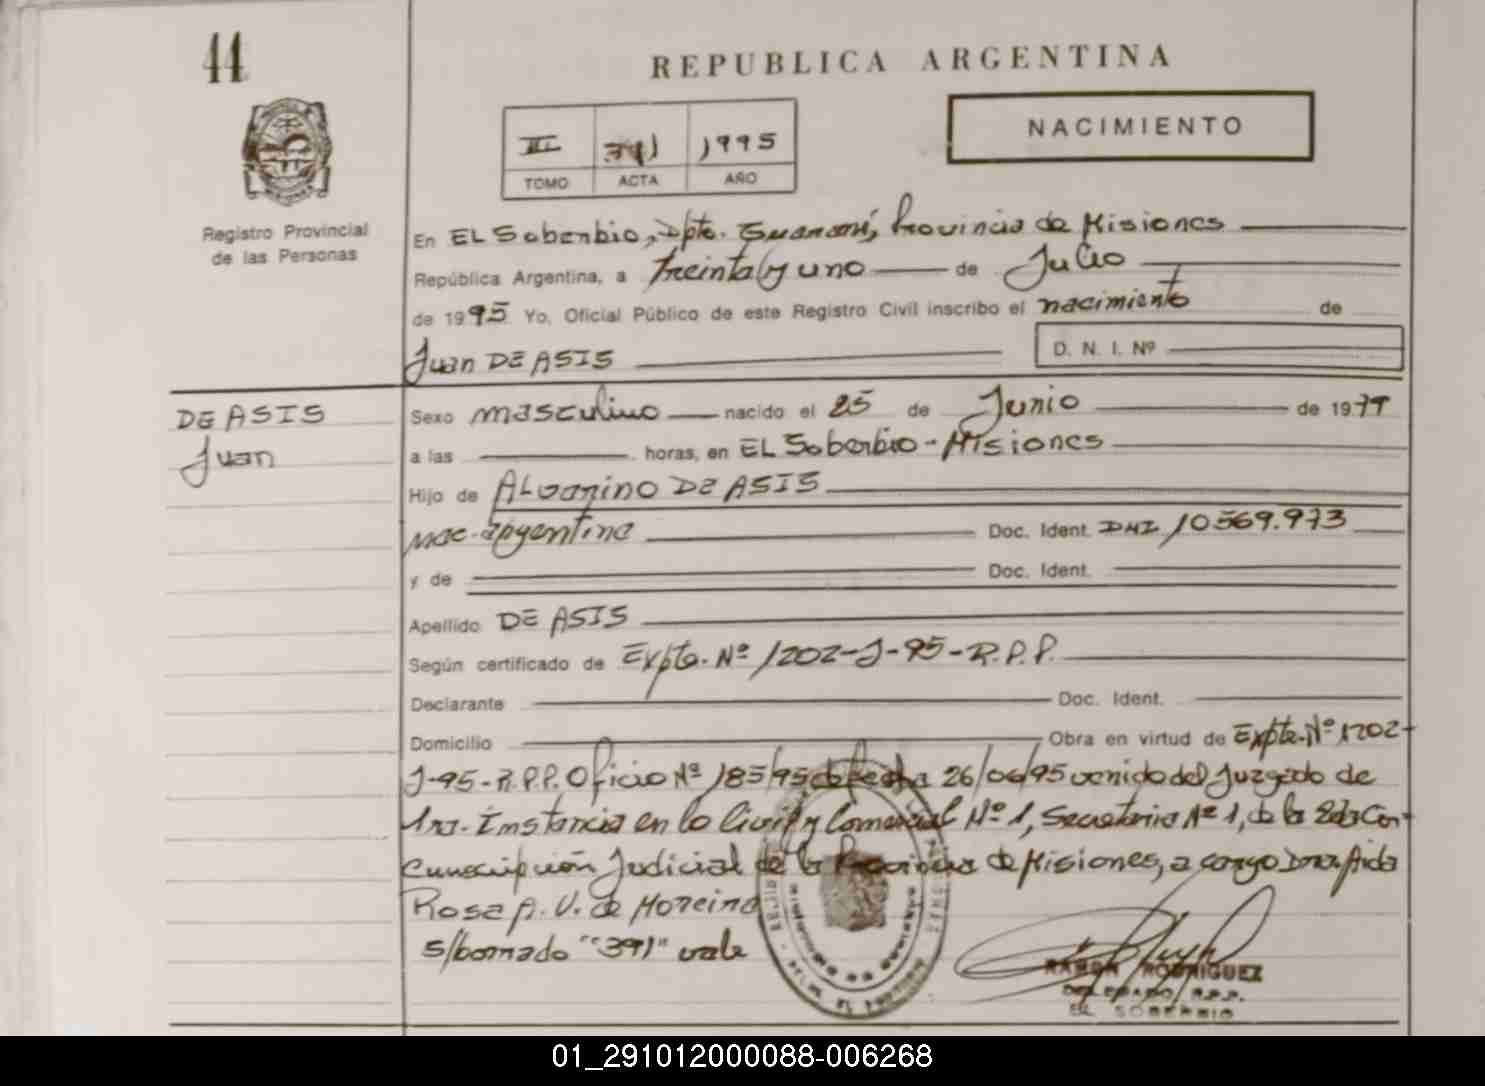 44
REPUBLICA ARGENTINA
NACIMIENTO
III 391 1995
TOMO ACTA AÑO
Registro Provincial
de las Personas
En EL Soberbio, Dpto. Guaraní, Provincia de Misiones
República Argentina, a treinta y uno de Julio
de 1995 Yo, Oficial Público de este Registro Civil inscribo el nacimiento de
Juan DE ASIS
D. N. I. Nº
DE ASIS
Juan
Sexo masculino nacido el 25 de Junio de 1977
a las horas, en EL Soberbio - Misiones
Hijo de ALVARINO DE ASIS
nac. argentina Doc. Ident. DNI 10569.973
y de Doc. Ident.
Apellido DE ASIS
Según certificado de Expte. Nº 1202-J-95-R.P.P.
Declarante Doc. Ident.
Domicilio Obra en virtud de Expte. Nº 1202-
J-95-R.P.P. Oficio Nº 185/95 de fecha 26/06/95 venido del Juzgado de
1ra. Instancia en lo Civil y Comercial Nº 1, Secretaria Nº 1, de la 2da Cir-
cunscripción Judicial de la Provincia de Misiones, a cargo Dra Aida
Rosa A. V. de Moreira
s/borrado "391" vale
RAMON RODRIGUEZ
DELEGADO R.P.P.
EL SOBERBIO
01_291012000088-006268